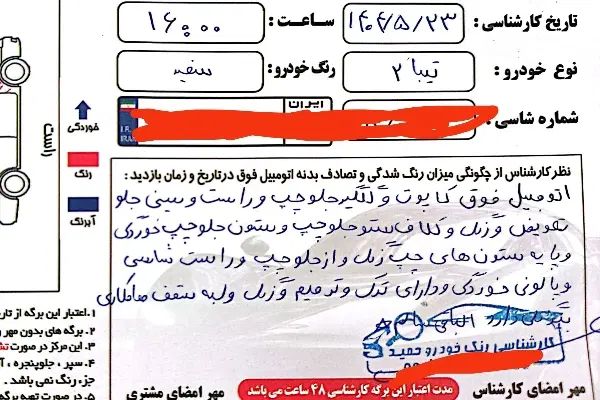 تاریخ کارشناسی : ۱۴۰۴/۵/۲۳ ساعت : ۱۶:۰۰
نوع خودرو : تیبا ۲ رنگ خودرو : سفید
شماره شاسی : ایران
I.R.
IRAN
خوردگی
رنگ
آبرنگ
راست
نظر کارشناس از چگونگی میزان رنگ شدگی و تصادف بدنه اتومبیل فوق در تاریخ و زمان بازدید :
اتومبیل فوق کاپوت و گلگیر جلو چپ و راست و سینی جلو
تعویض و رنگ و گلاف ستون جلو چپ و ستون جلو چپ خوردگی
و پایه ستون های چپ رنگ و از جلو چپ و راست شاسی
و پالونی خوردگی و دارای ترک و ترمیم و رنگ و لبه سقف صافکاری
رنگ دارد
کارشناسی رنگ خودرو حمید
۱. اعتبار این برگه از تار
۲. برگه های بدون مهر و
۳. این مرکز در صورت تش
۴. سپر ، جلوپنجره ، آ
جزء رنگ نمی باشد .
۵. در صورت تهیه برگه
مهر امضای کارشناس مدت اعتبار این برگه کارشناسی ۴۸ ساعت می باشد مهر امضای مشتری